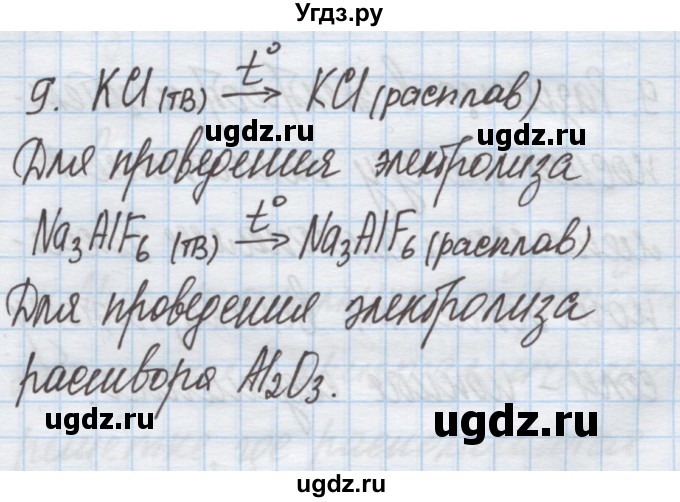 Угдз.ру
9. KCl (тв) t° → KCl (расплав)
ugdz.ru
ugdz.ru
Для проведения электролиза
ugdz.ru
Na₃AlF₆ (тв) t° → Na₃AlF₆ (расплав)
Для проведения электролиза
раствора Al₂O₃.
ugdz.ru
ugdz.ru
ugdz.ru